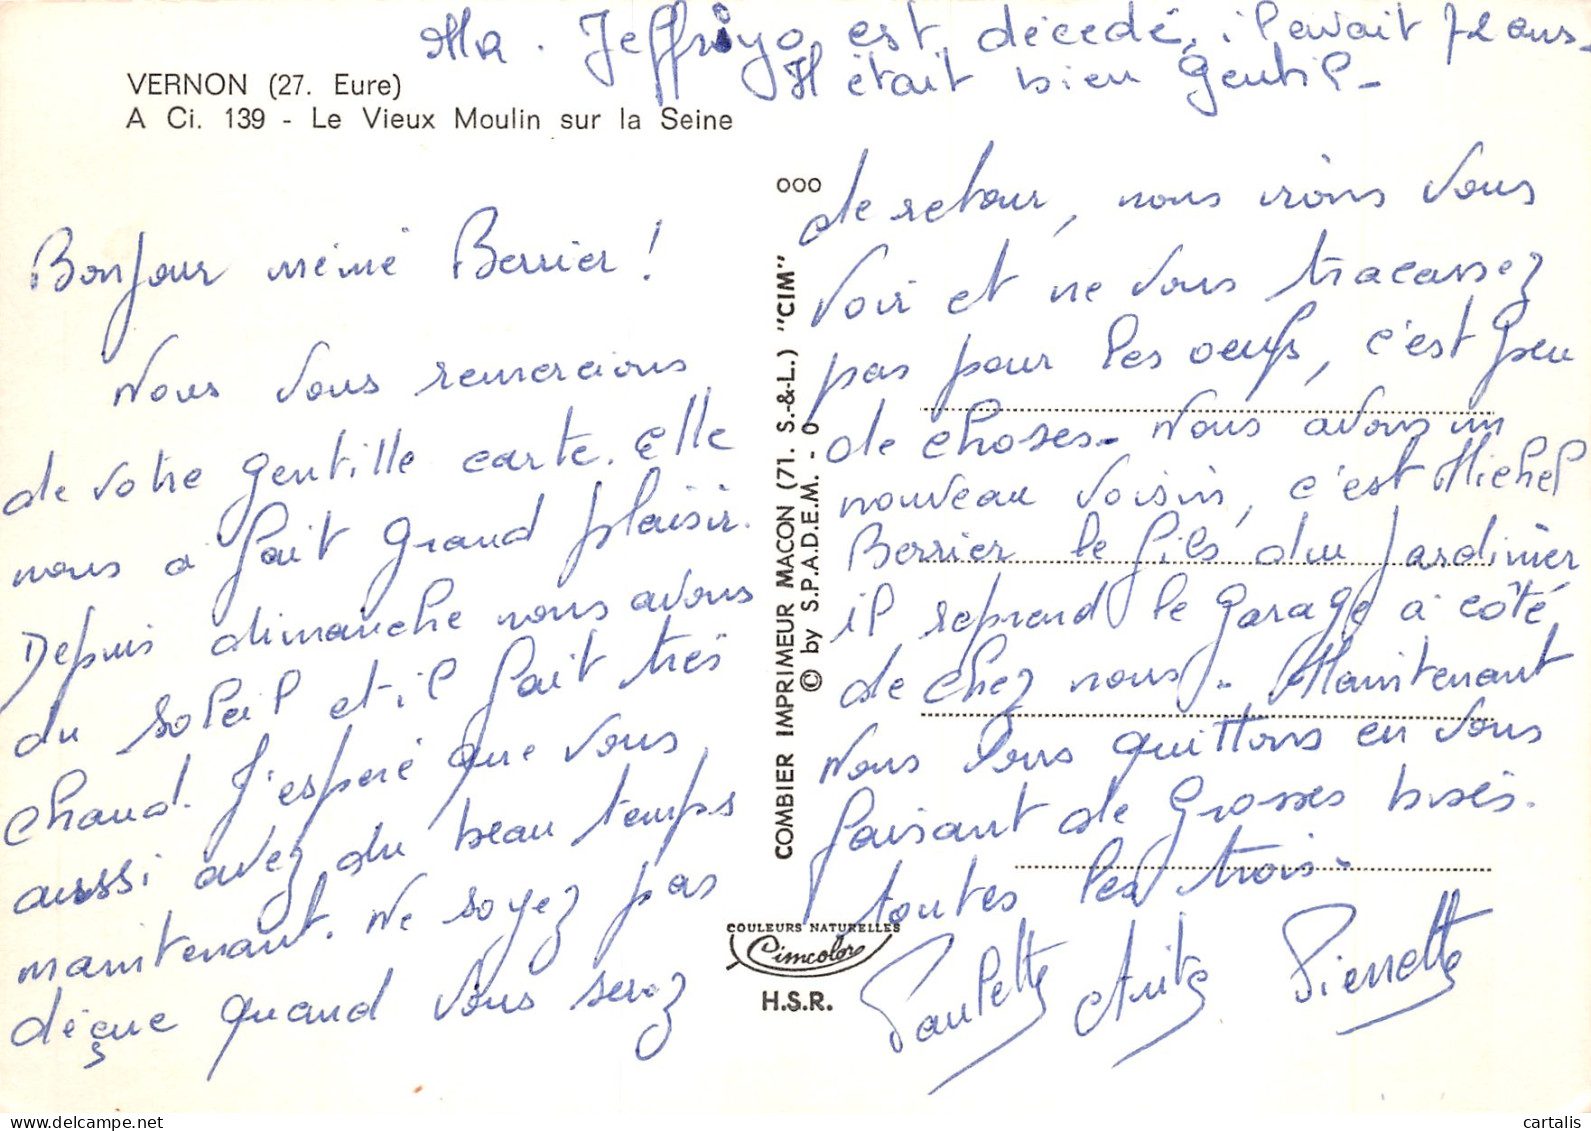 Ma . Jeffryo est décédé, il avait 72 ans.
Il était bien gentil -
VERNON (27. Eure)
A Ci. 139 - Le Vieux Moulin sur la Seine
Bonjour mémé Berrier !
Nous vous remercions
de votre gentille carte. elle
nous a fait grand plaisir.
Depuis dimanche nous avons
du soleil et il fait très
chaud. J'espère que vous
aussi avez du beau temps
maintenant. Ne soyez pas
déçue quand vous serez
ooo
COMBIER IMPRIMEUR MACON (71. S.-&-L.) "CIM"
© by S.P.A.D.E.M. - 0
COULEURS NATURELLES
Cimcolor
H.S.R.
de retour, nous irons vous
voir et ne vous tracassez
pas pour les oeufs, c'est peu
de choses. Nous avons un
nouveau voisin, c'est Michel
Berrier le fils du jardinier
il reprend le garage à côté
de chez nous. Maintenant
Nous vous quittons en vous
faisant de grosses bises.
toutes les trois -
Paulette Anita Pierrette
cartalis